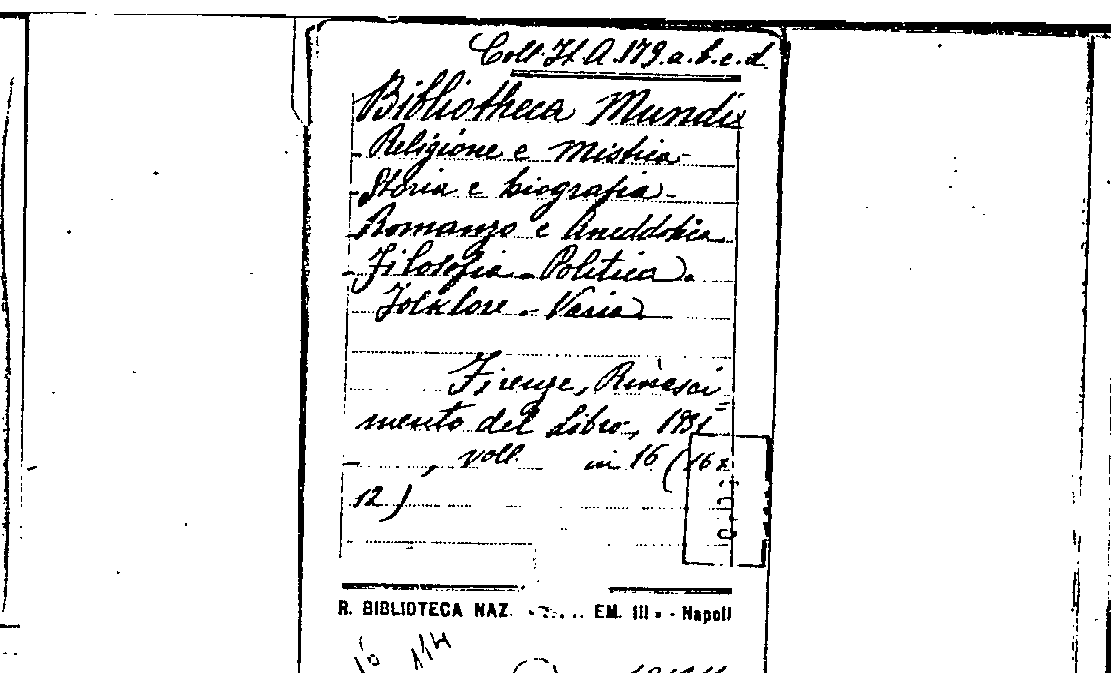 Coll. It. A. 179. a. b. c. d.
Bibliotheca Mundi
Religione e Mistica -
Storia e biografia -
Romanzo e Aneddotica
Filosofia - Politica.
Folklore - Varia.
Firenze, Rinasci
mento del Libro, 1931
, voll. in 16 (16 x
12)
R. BIBLIOTECA NAZ. EM. III - Napoli
16 114